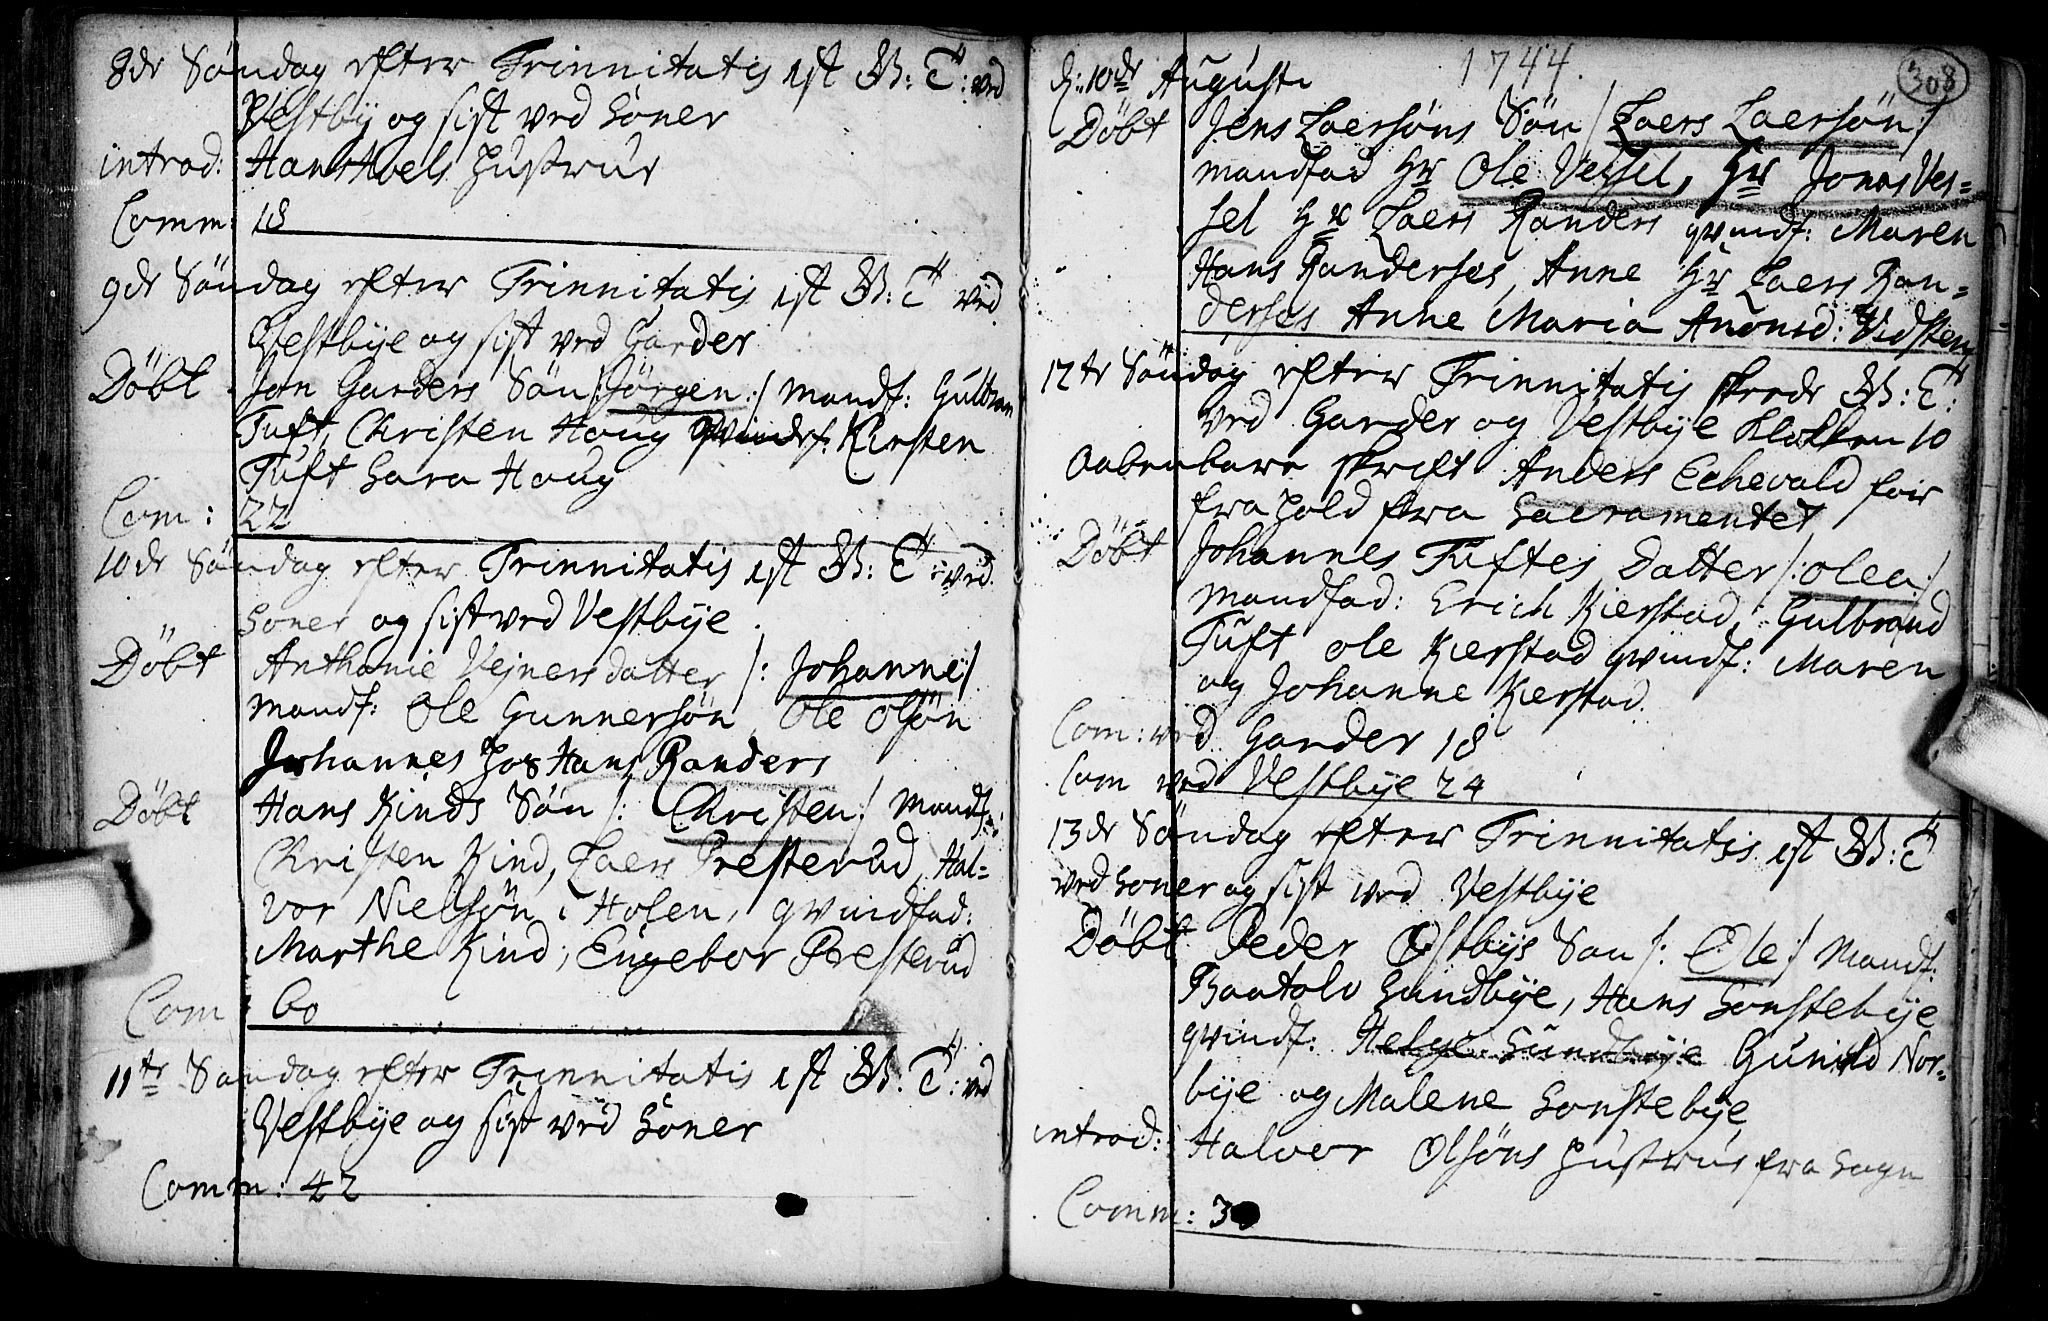 8de Söndag efter Trinnitatis est B: T: ved
Vestby og sist ved Soner
introd: Hans Hvels Hustrue
Comm: 18
9de Söndag efter Trinnitatis est B: T ved
Vestbye og sist ved Garder
Döbt Jan Garders Sön /: Jörgen :/ mandf: Gulbran
Tuft, Christen Haug qvindf: Kirsten
Tuft Sara Haug
Com: 22
10de Söndag efter Trinnitatis est B: T: ved
Soner og sist ved Vestbye
Döbt Anthonie Vejnersdatter /: Johanne :/
mandf: Ole Gunnersön Ole Olsön
Johannes Hans Randers
Döbt Hans Kinds Sön /: Christen :/ mandf:
Christen Kind, Laers Presterud, Hal-
vor Nielsön i Holen, qvindfad:
Marthe Kind, Engebor Presterud
Com: 60
11te Söndag efter Trinnitatis est B: T: ved
Vestbye og sist ved Soner
Comm: 42
1744.
308
d: 10de Augusti
Döbt Jens Laersöns Sön /: Laers Laersön :/
mandfad Hr Ole Vessel, Hr Jonas Ves-
sel Hr Laers Randers qvindf: Maren
Hans Randerses, Anne Hr Laers Ran-
derses Anne Maria Anonsd: Vidsteen
12te Söndag efter Trinnitatis skede B: T:
ved Garder og Vestbye Klokken 10
Aabenbare skrift Anders Echevald for
fra hold fra Sacramentet
Döbt Johannes Tuftes Datter /: Olea :/
mandfad: Erich Kierstad, Gulbrand
Tuft Ole Kierstad qvindf: Maren
og Johanne Kierstad
Com: ved Garder 18
Com ved Vestbye 24
13de Söndag efter Trinnitatis est B: T
ved Soner og sist ved Vestbye
Döbt Peder Ostbys Son /: Ole :/ mandf:
Baatolv Sundbye, Hans Sonstebye
qvindf: Helge Sundbye Gunild Nor-
bye og Malene Sonstebye
introd: Halvor Olsöns Hustrue fra Sogn
Comm: 3